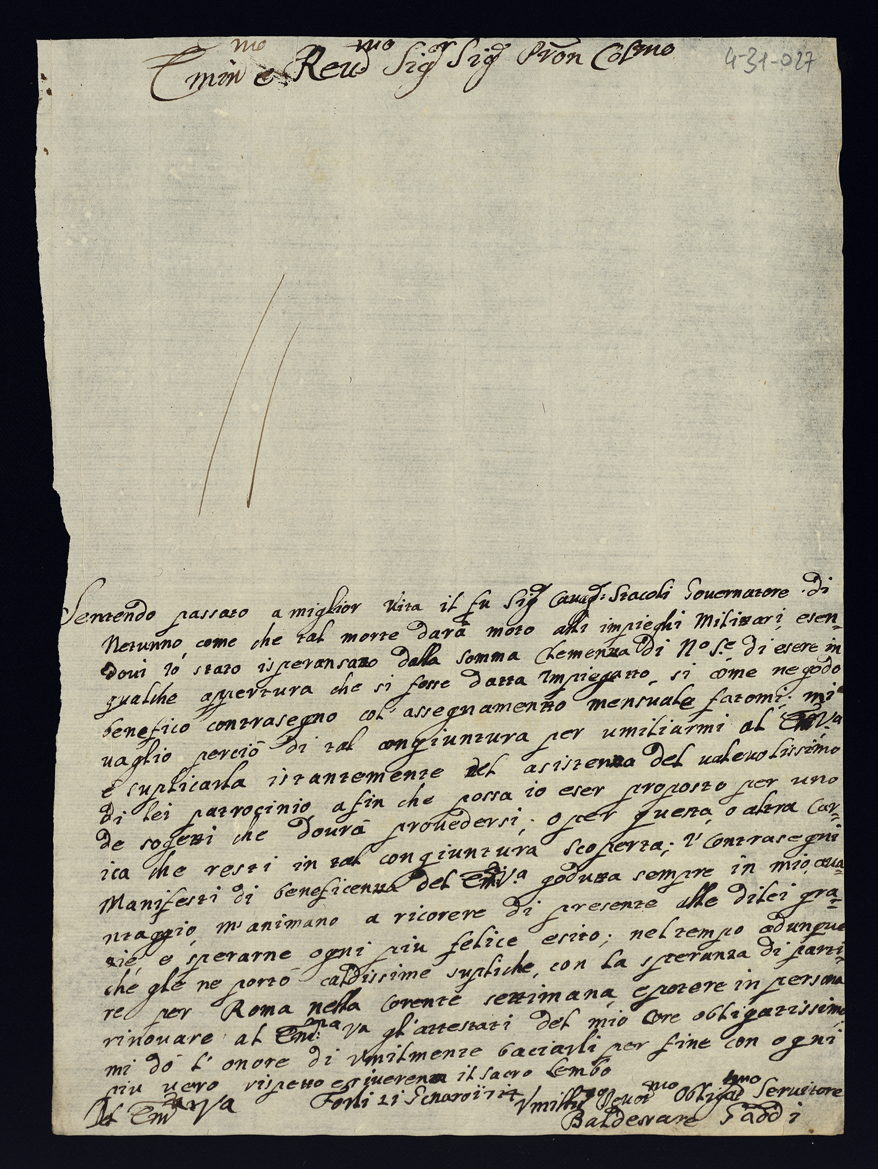 Emin.mo e Reu.mo Sig.r Sig.r Pron Col.mo
4-31-027
Sentendo passato a miglior vita il fu Sig.r Cavag.r Stacoli Governatore di
Netunno, come che tal morte darà moto alli impieghi Militari, esen-
doui io stato isperansato dalla somma Clemenza di N.o S.e di esere in
qualche appertura che si fosse datta Impiegatto, si come ne godo
benefico contrasegno col' assegnamento mensuale fatomi; mi
uaglio perciò di tal congiuntura per umiliarmi al' Em.za V.a
e suplicarla istantemente del asistenza del ualeuolissimo
di lei patrocinio a fin che possa io eser proposto per uno
de sogetti che dourà prouedersi, o per questa, o altra Car-
ica che resti in tal congiuntura scoperta; l' Contrasegni
Manifesti di beneficenza del Em.za V.a godutta sempre in mio aua-
ntaggio m'animano a ricorere di presente alle di lei gra-
zie e sperarne ogni piu felice esito; nel tempo adunque
che gle ne porto caldissime supliche, con la speranza di parti-
re per Roma nella Corente settimana, e potere in persona
rinouare al Em.za V.a gl'attestati del mio Core obligatissimo
mi dò l' onore di Vmilmente baciarli per fine con ogni
piu uero rispetto e riuerenza il sacro Lembo
Del Em.za V.a Forlì Li
Vmilis.mo Deuot.mo Obligat.mo Seruitore
Baldesare Gaddi